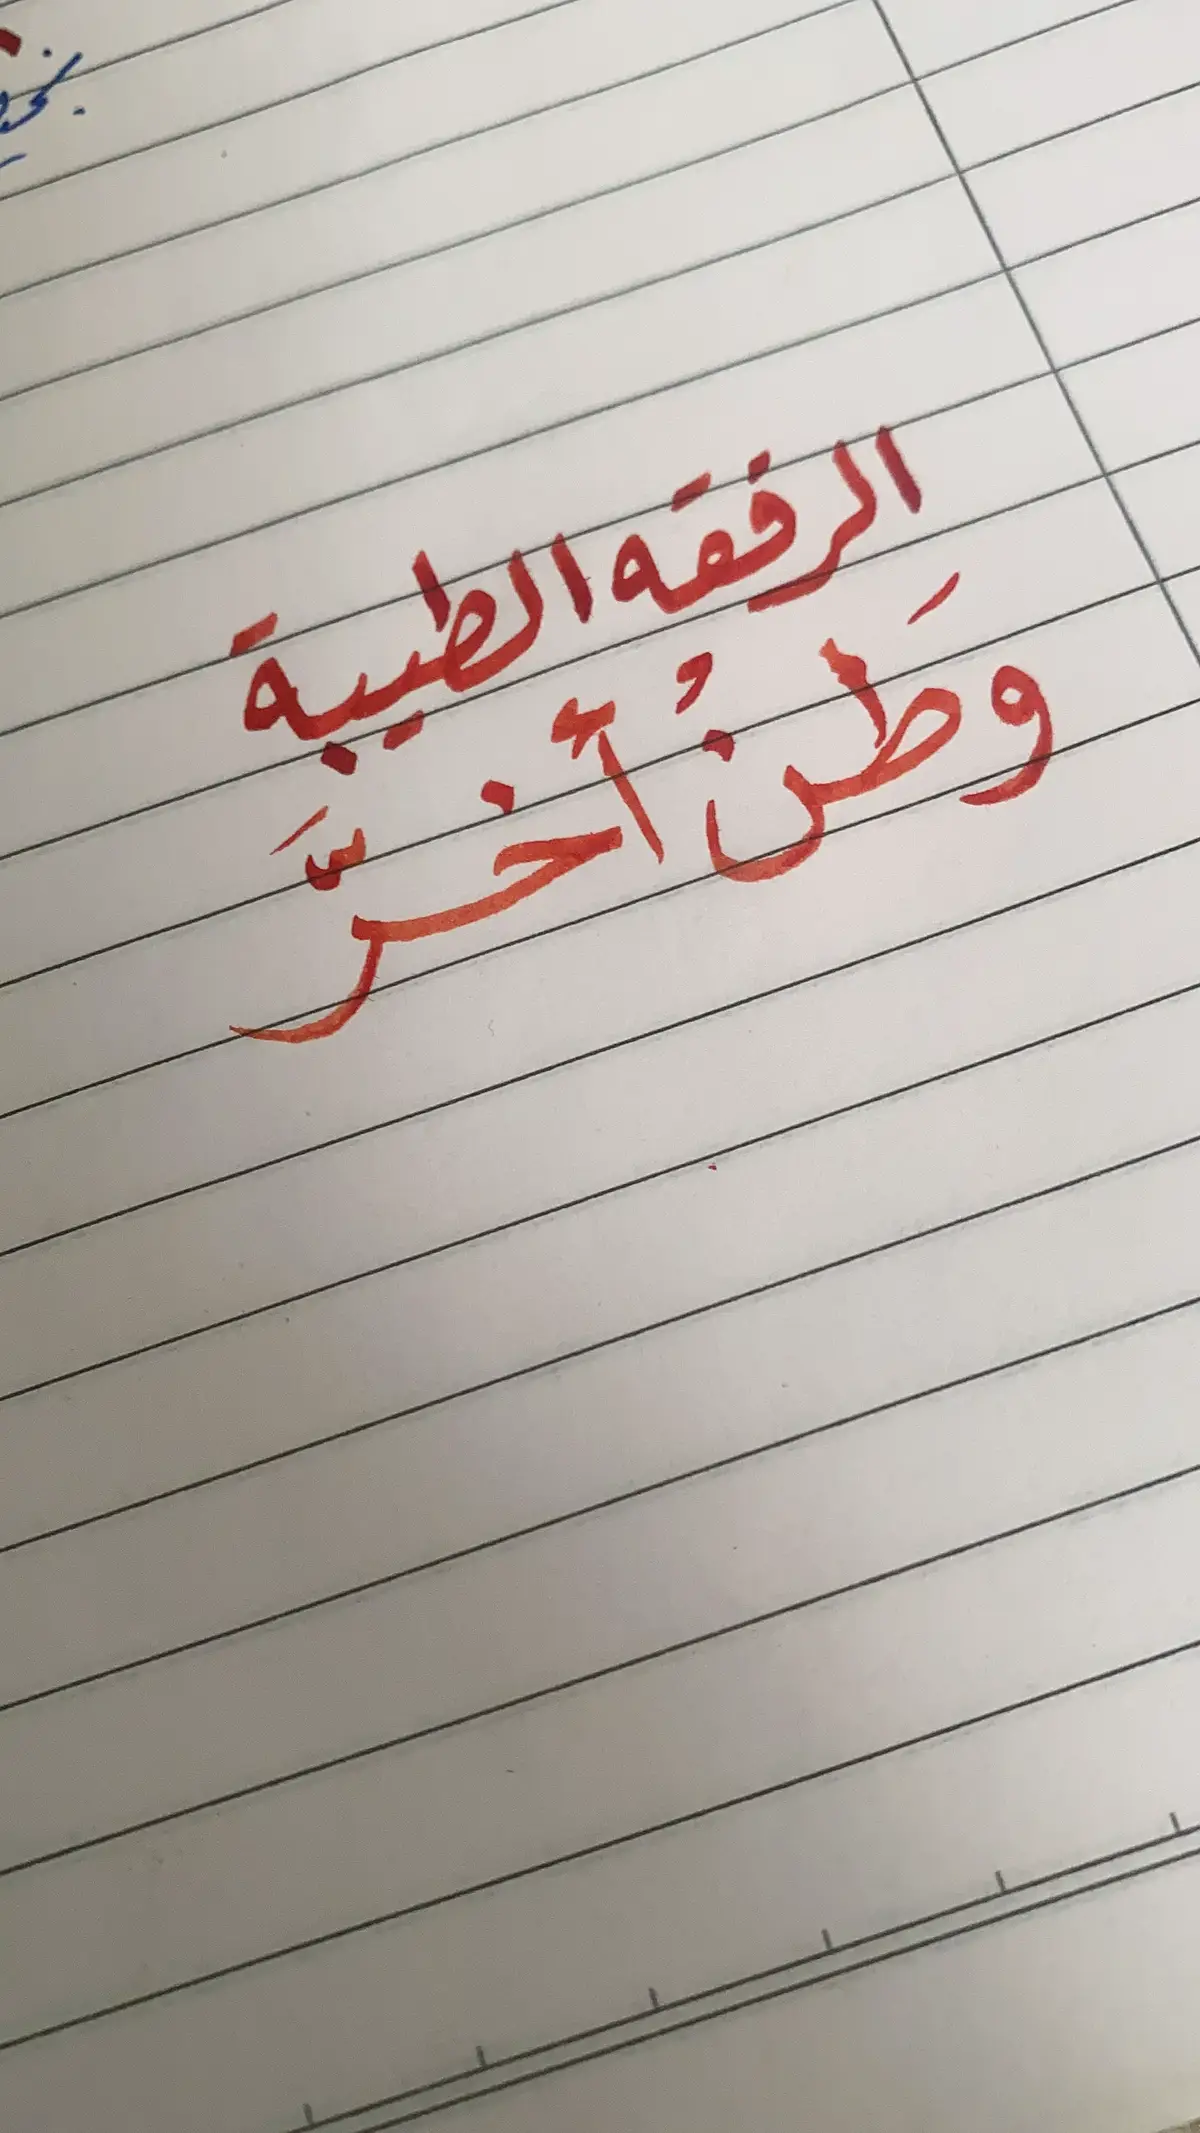 الرفقه الطيبة
وَطنْ أخرَّ